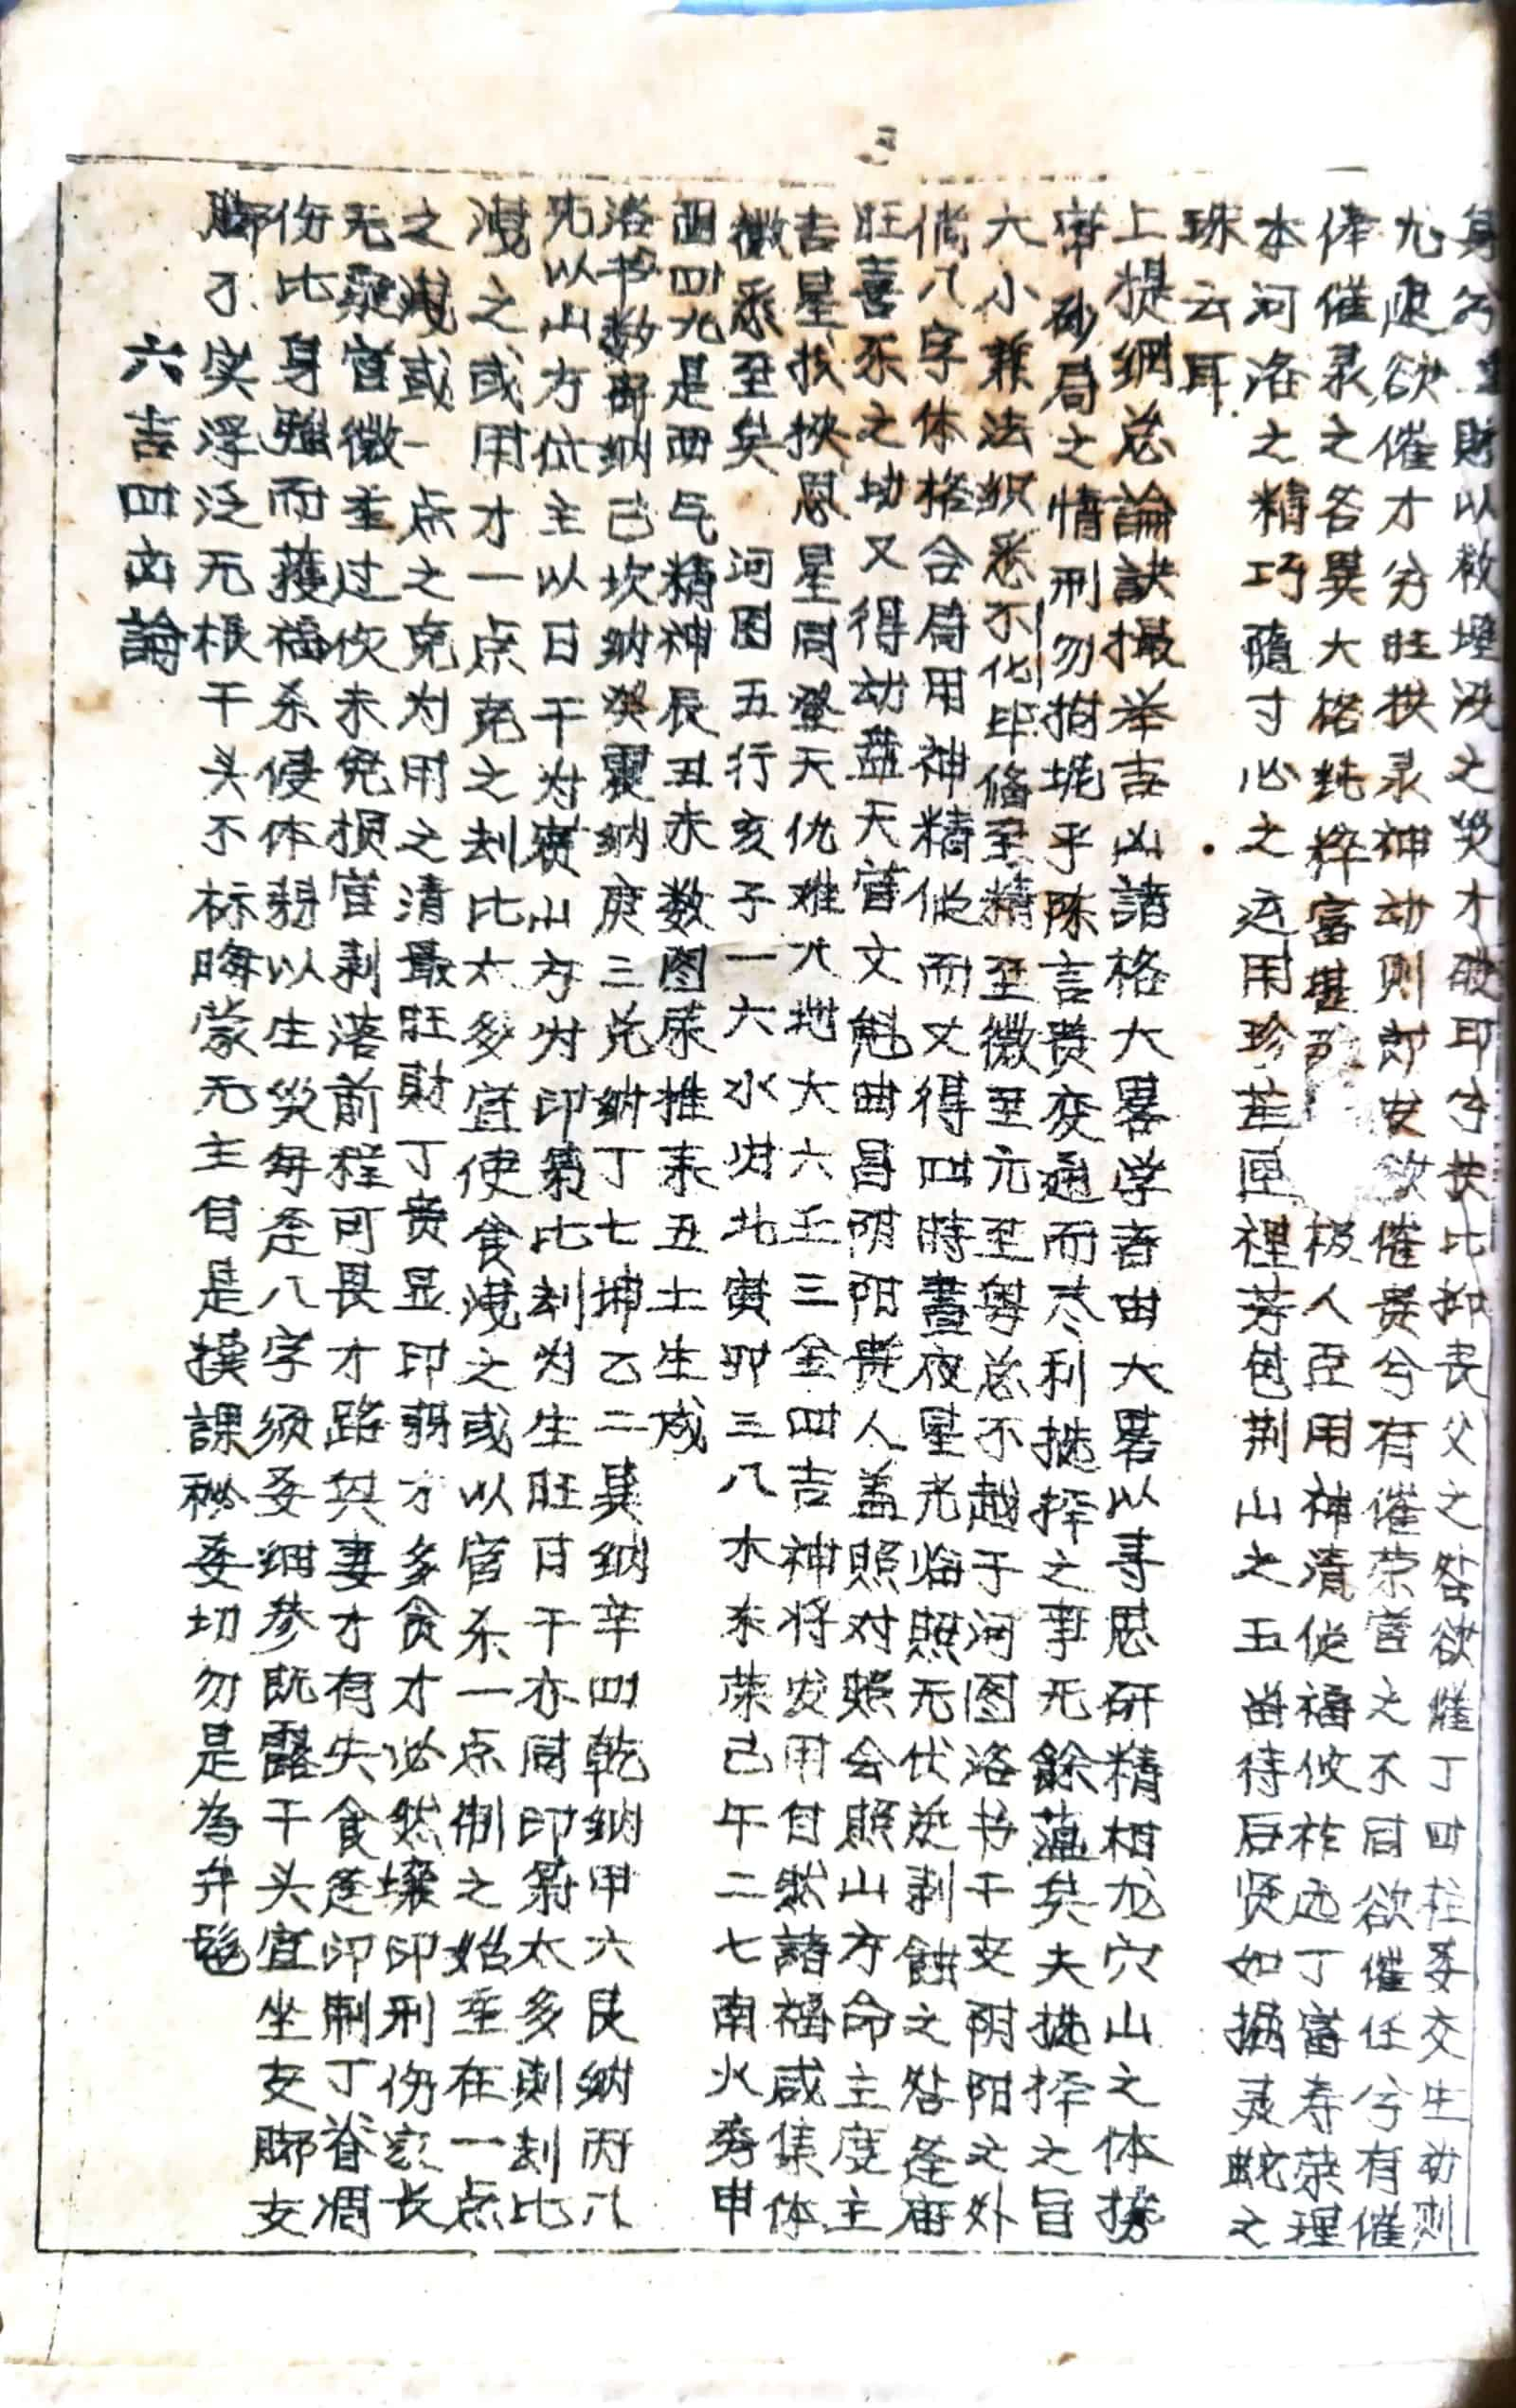 身兮財以救埋没之災才破印兮扶比抑丧父之咎欲催丁四柱委交生劫则
尤退欲催才分旺扶录神劫则郎安欲催贵兮有催荣官之不同欲催任兮有催
俸催录之各異大格純粹富甚极人臣用神清従福攸祚远丁富寿荣理
本河洛之精巧隨寸心之运用珍茔匣裡芳包荆山之玉留待后贤如握灵蛇之
珠云耳
上提綱总論訣撮举吉凶諸格大畧学者由大畧以寻思研精相龙穴山之体摉
官砂局之情刑勿拘坭乎陈言贵变通而尽利搃择之事无餘蕰矣夫搃择之旨
大小兼法织悉不化毕俻至精至微至元至粤总不越于河图洛书干支阴阳之外
倘八字体格合局用神精従而又得四時晝夜星光临照无伏逆剥蝕之咎莲庙
旺喜乐之劫又得劫盘天官文魁曲昌阴阳贵人盖照对照会照山方命主度主
吉星扶挾恩星同登天仇难尤地大六壬三金四吉神将发用自然諸福咸集体
微悉至矣 河图五行亥子一六水归北寅卯三八木东荣己午二七南火秀申
酉四九是西气精神辰丑未数图荣推来五土生成
洛书数离纳己坎纳癸震纳庚三兑纳丁七坤乙二巽纳辛四乾纳甲六艮纳丙八
先以山方位主以日干为賓山方为印枭比刦为生旺日干亦同印枭太多則刦比
洩之或用才一点克之刦比太多宜使食洩之或以官杀一点制之始重在一点
之洩或一点之克为用之清最旺財丁贵显印弱才多食才必然壞印刑伤家长
无疑官微重过伙未免损官剥落前程可畏才路與妻才有失食莲印制丁脊凋
伤比身强而獲福杀侵体弱以生災每歪八字须委细参既露干头宜坐支脚支
脚不实浮泛无根干头不标晦蒙无主自是撲課秘委切勿是為弁髦
六吉四凶論